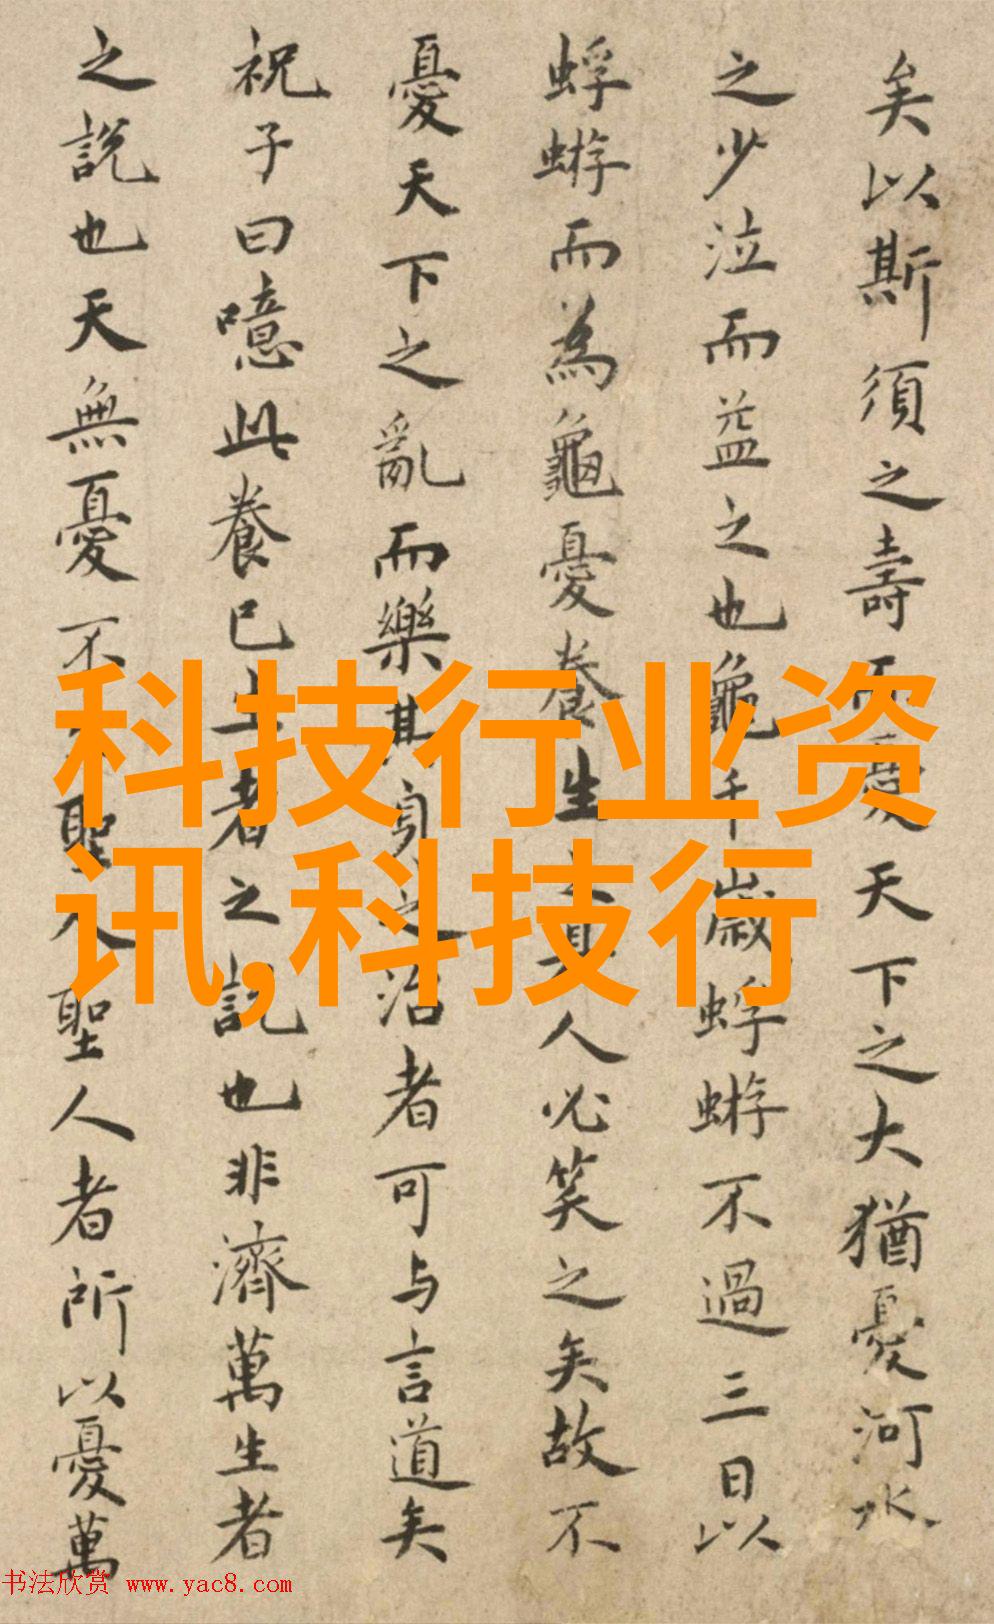 矣以斯須之壽而憂天下之大猶憂河水
之少泣而益之也龜千歲蜉蝣不過三日以
蜉蝣而為龜憂養生之具人必笑之矣故不
憂天下之亂而樂其身之治者可与言道矣
祝子曰噫此養己生者之説也非濟萬生者
之説也天無憂不聖人聖人者所以憂萬
科技行业资
讯,科技行
书法欣赏 www.yac8.com